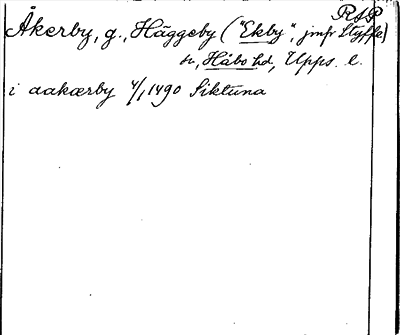 RSP
Åkerby, g., Häggeby ("Ekby", jmfr Styffe)
sn, Håbo hd, Upps. l.
i aakærby 4/1 1490 Siktuna